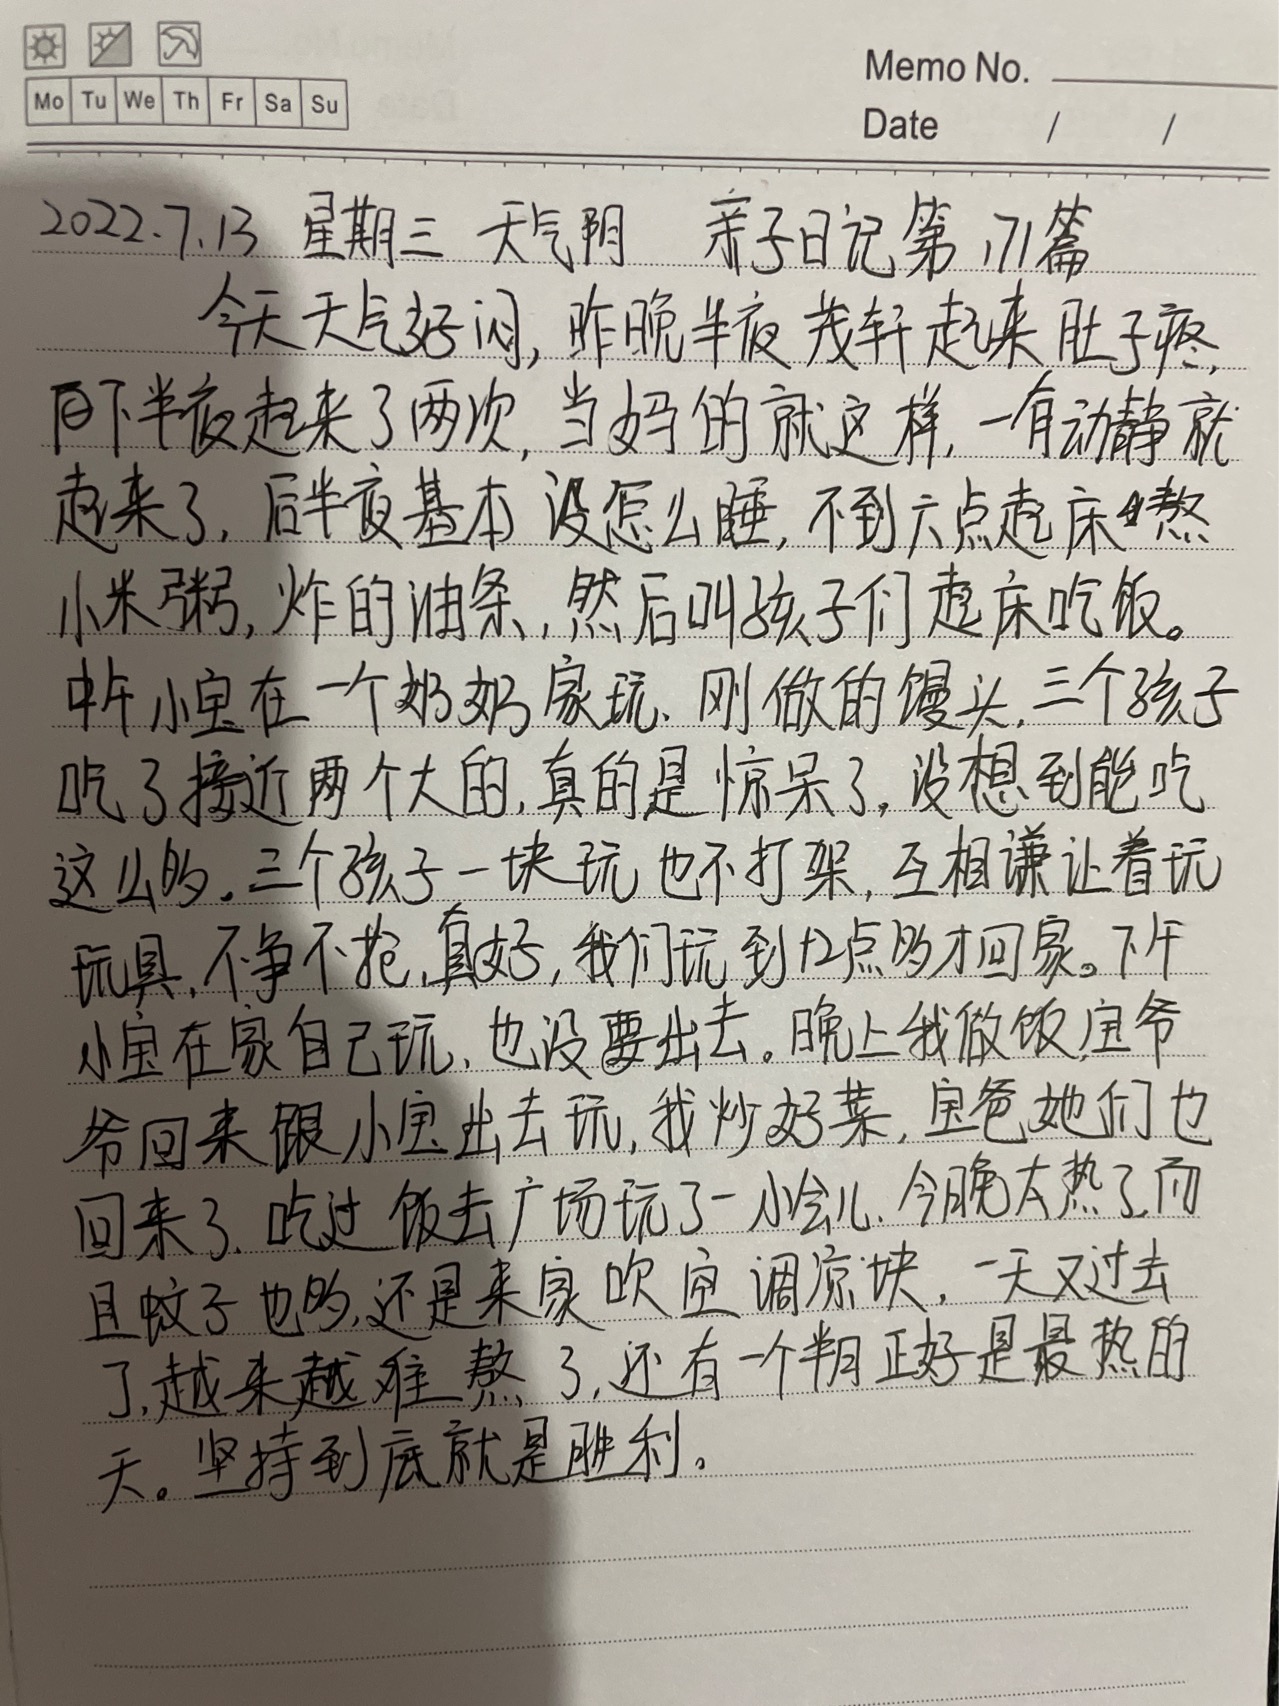 Mo Tu We Th Fr Sa Su
Memo No.
Date / /
2022.7.13 星期三 天气阴 亲子日记第171篇
今天天气好闷，昨晚半夜茂轩起来肚子疼，
下半夜起来了两次，当妈的就这样，一有动静就
起来了，后半夜基本没怎么睡，不到六点起床熬
小米粥，炸的油条，然后叫孩子们起床吃饭。
中午小宝在一个奶奶家玩、刚做的馒头，三个孩子
吃了接近两个大的，真的是惊呆了，没想到能吃
这么多。三个孩子一块玩也不打架，互相谦让着玩
玩具，不争不抢，真好，我们玩到12点多才回家。下午
小宝在家自己玩，也没要出去。晚上我做饭，宝爷
爷回来跟小宝出去玩，我炒好菜，宝爸她们也
回来了，吃过饭去广场玩了一小会儿，今晚太热了，而
且蚊子也多，还是来家吹空调凉快，一天又过去
了，越来越难熬了，还有一个半月正好是最热的
天。坚持到底就是胜利。